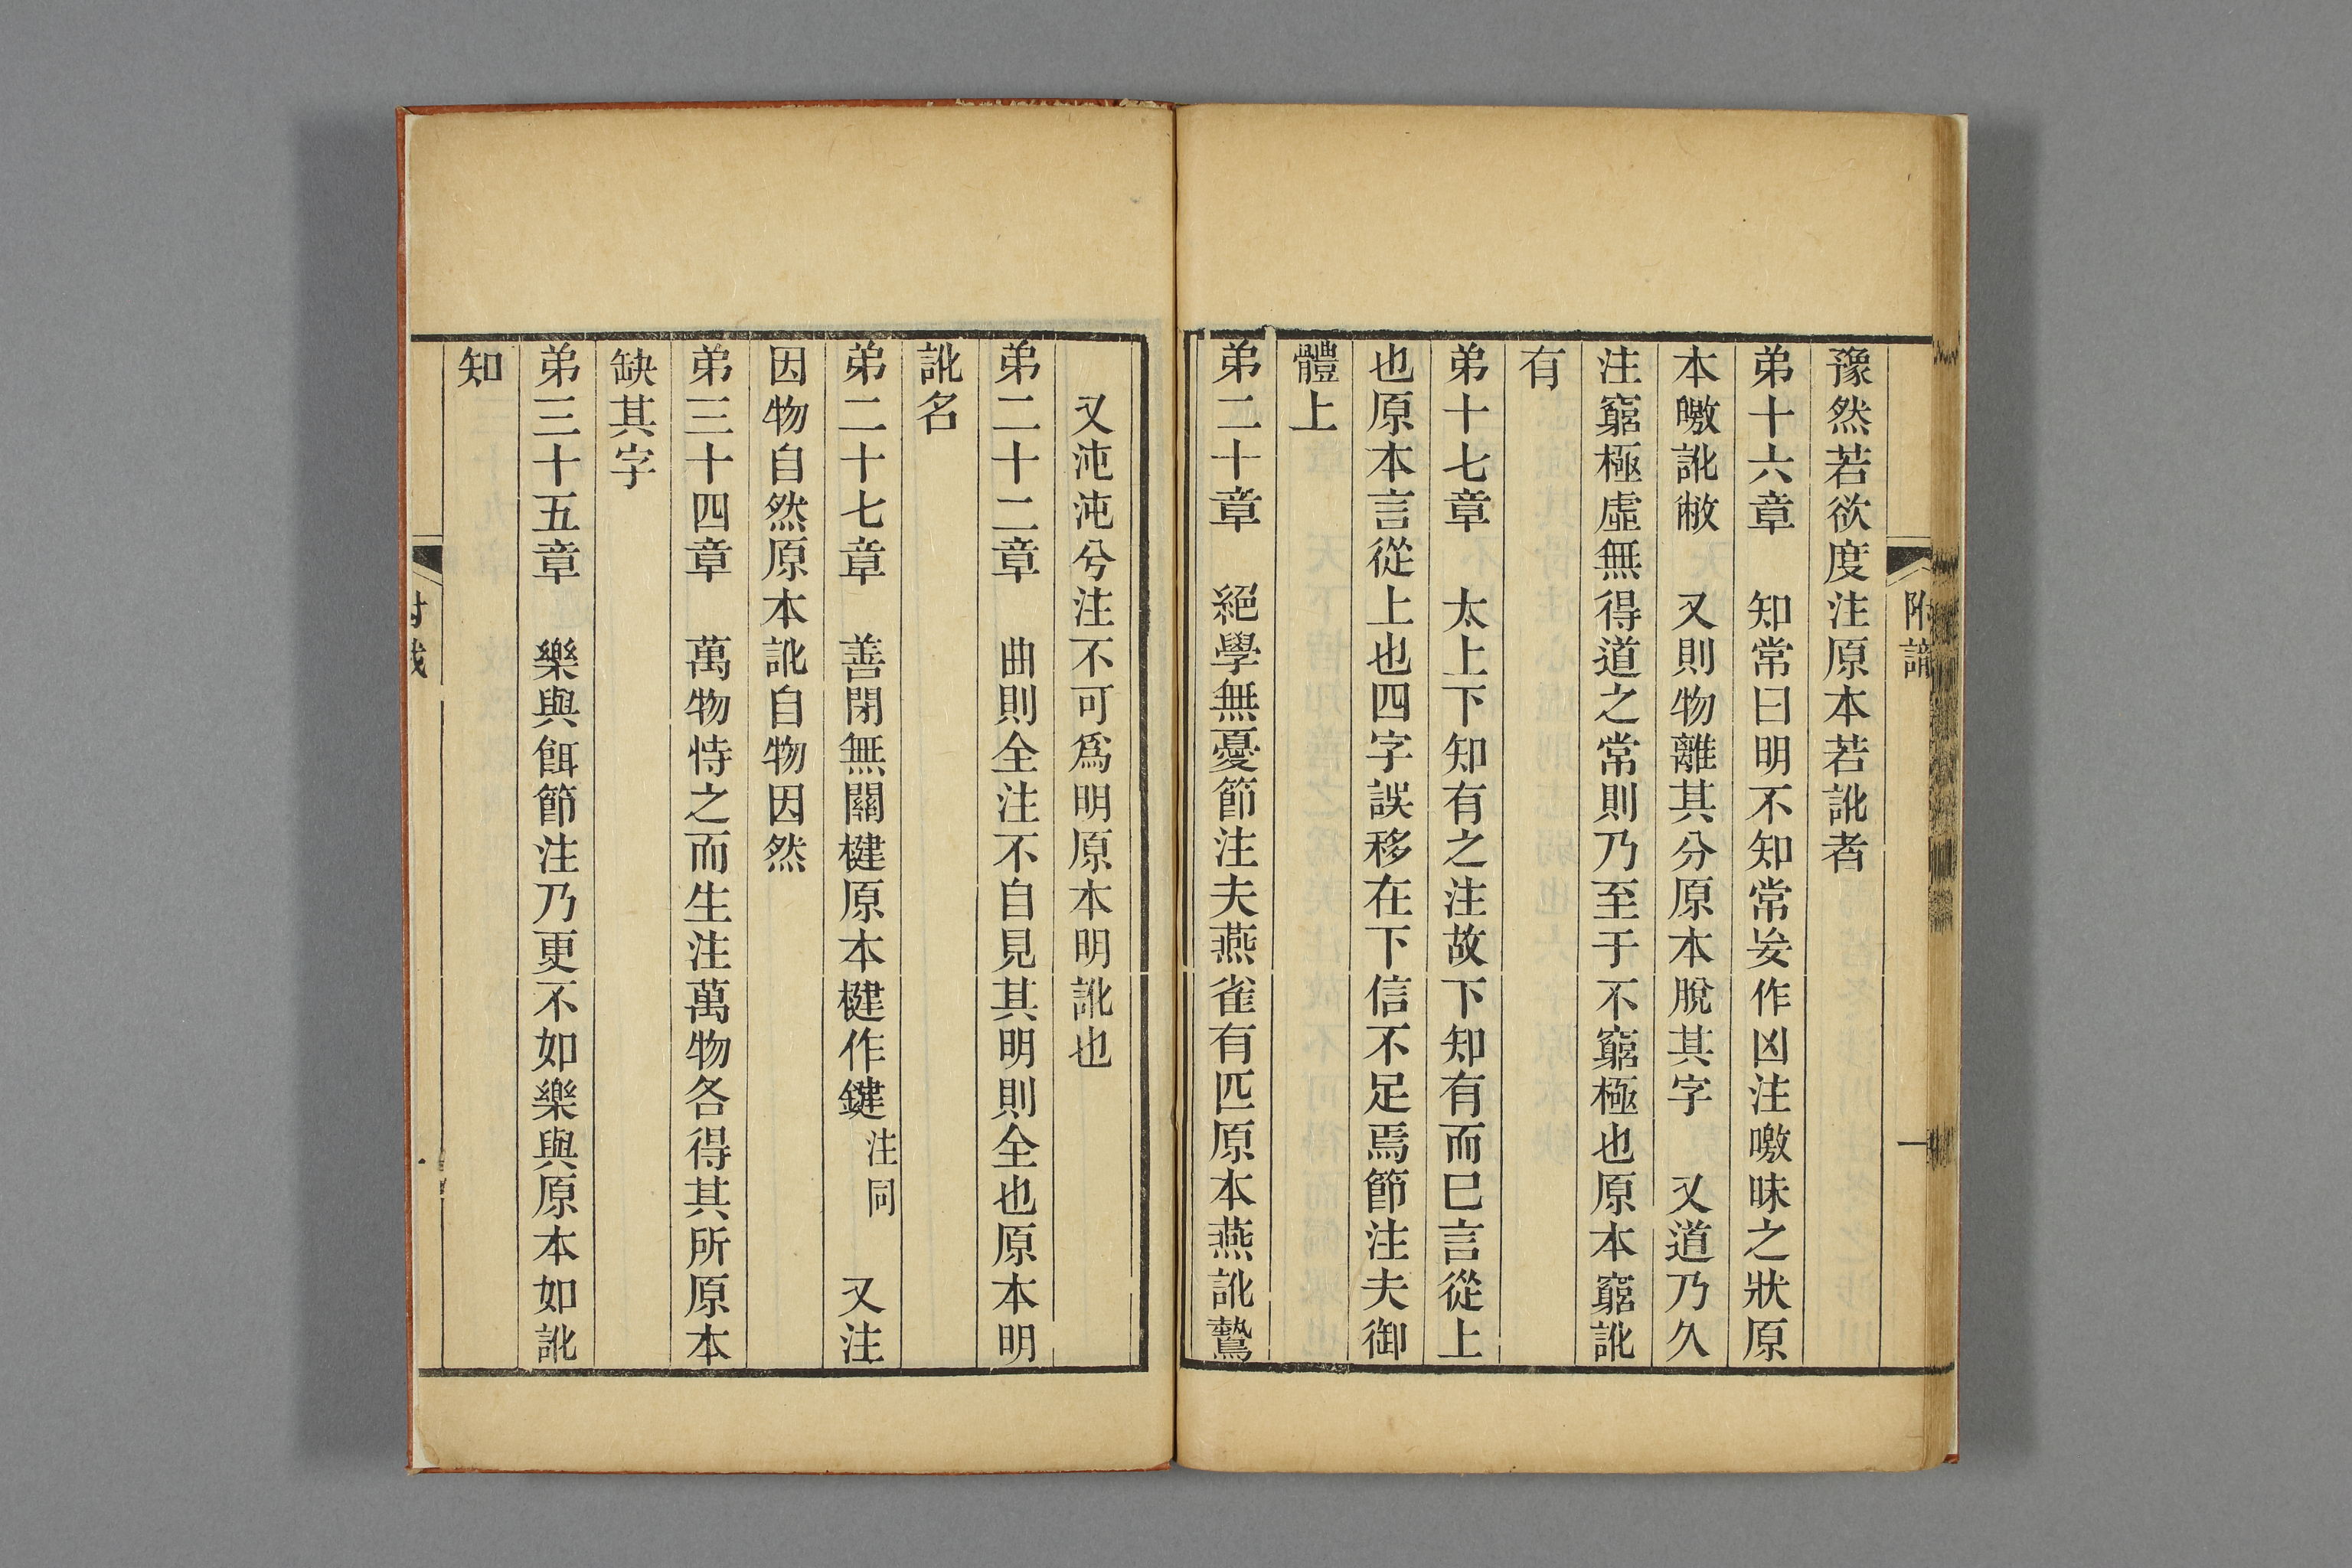 附識
一
豫然若欲度注原本若訛者
弟十六章　知常曰明不知常妄作凶注噭昧之狀原
本曒訛敝　又則物離其分原本脫其字　又道乃久
注窮極虛無得道之常則乃至于不窮極也原本窮訛
有
弟十七章　太上下知有之注故下知有而巳言從上
也原本言從上也四字誤移在下信不足焉節注夫御
體上
弟二十章　絕學無憂節注夫燕雀有匹原本燕訛鷙
又沌沌兮注不可爲明原本明訛也
弟二十二章　曲則全注不自見其明則全也原本明
訛名
弟二十七章　善閉無關楗原本楗作鍵注同　又注
因物自然原本訛自物因然
弟三十四章　萬物恃之而生注萬物各得其所原本
缺其字
弟三十五章　樂與餌節注乃更不如樂與原本如訛
知